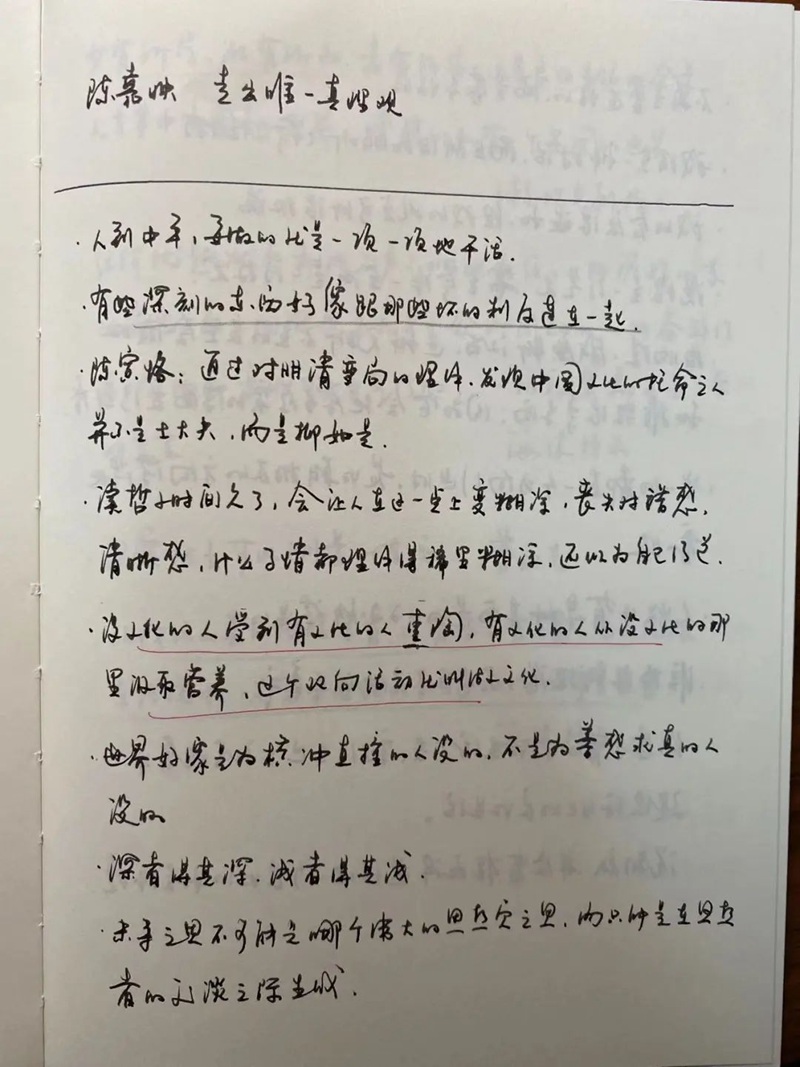 陈嘉映 走出唯一真理观
·人到中年,要做的就是一项一项地干活.
·有些深刻的东西好像跟那些坏的制度连在一起.
·陈寅恪:通过对明清变局的理解,发现中国文化的托命之人
并不是士大夫,而是柳如是.
·读哲学时间久了,会让人在这一点上变糊涂,丧失对错感,
清晰感,什么事情都理解得稀里糊涂,还以为自己得道.
·没文化的人受到有文化的人熏陶,有文化的人从没文化的那
里汲取营养,这个双向活动就叫做文化.
·世界好像是为横冲直撞的人设的,不是为善感求真的人
设的
·深者得其深,浅者得其浅.
·未来之思不可能是哪个伟大的思想家之思,而只能是在思想
者的交谈之际生成.